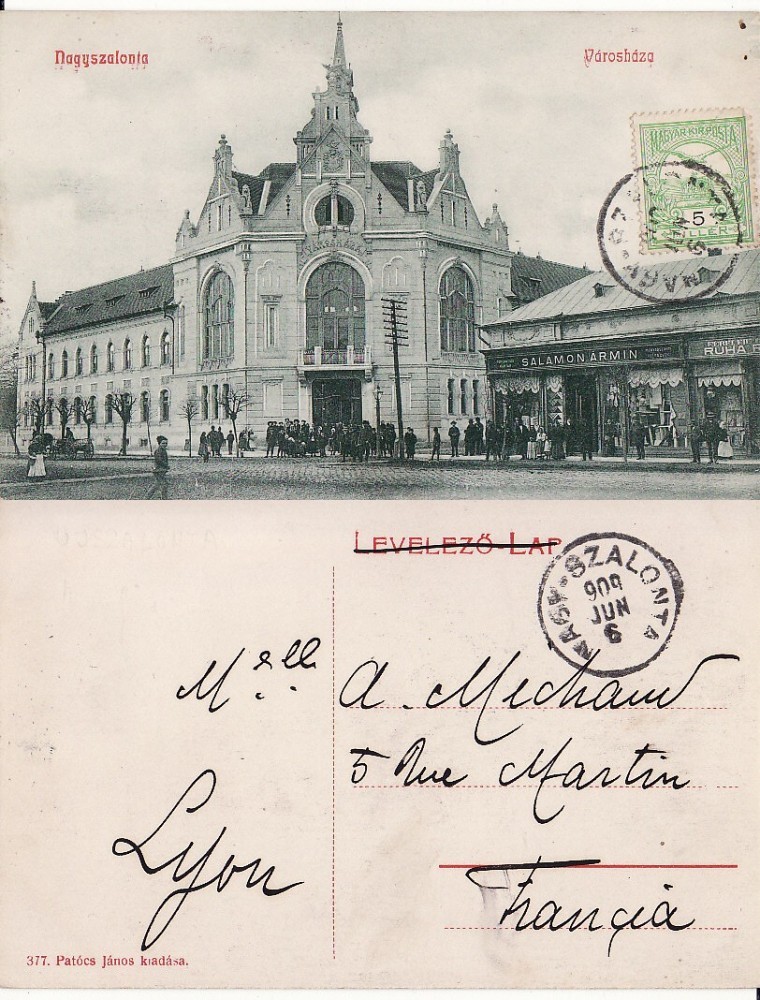 Nagyszalonta
Városháza
MAGYAR KIR. POSTA
5
FILLER
VÁROSHÁZA
SALAMON ÁRMIN
RUHA
LEVELEZŐ-LAP
NAGY-SZALONTA
909
JUN
6
Melle A. Mechaud
5 Rue Martin
Lyon
Francia
377. Patócs János kiadása.